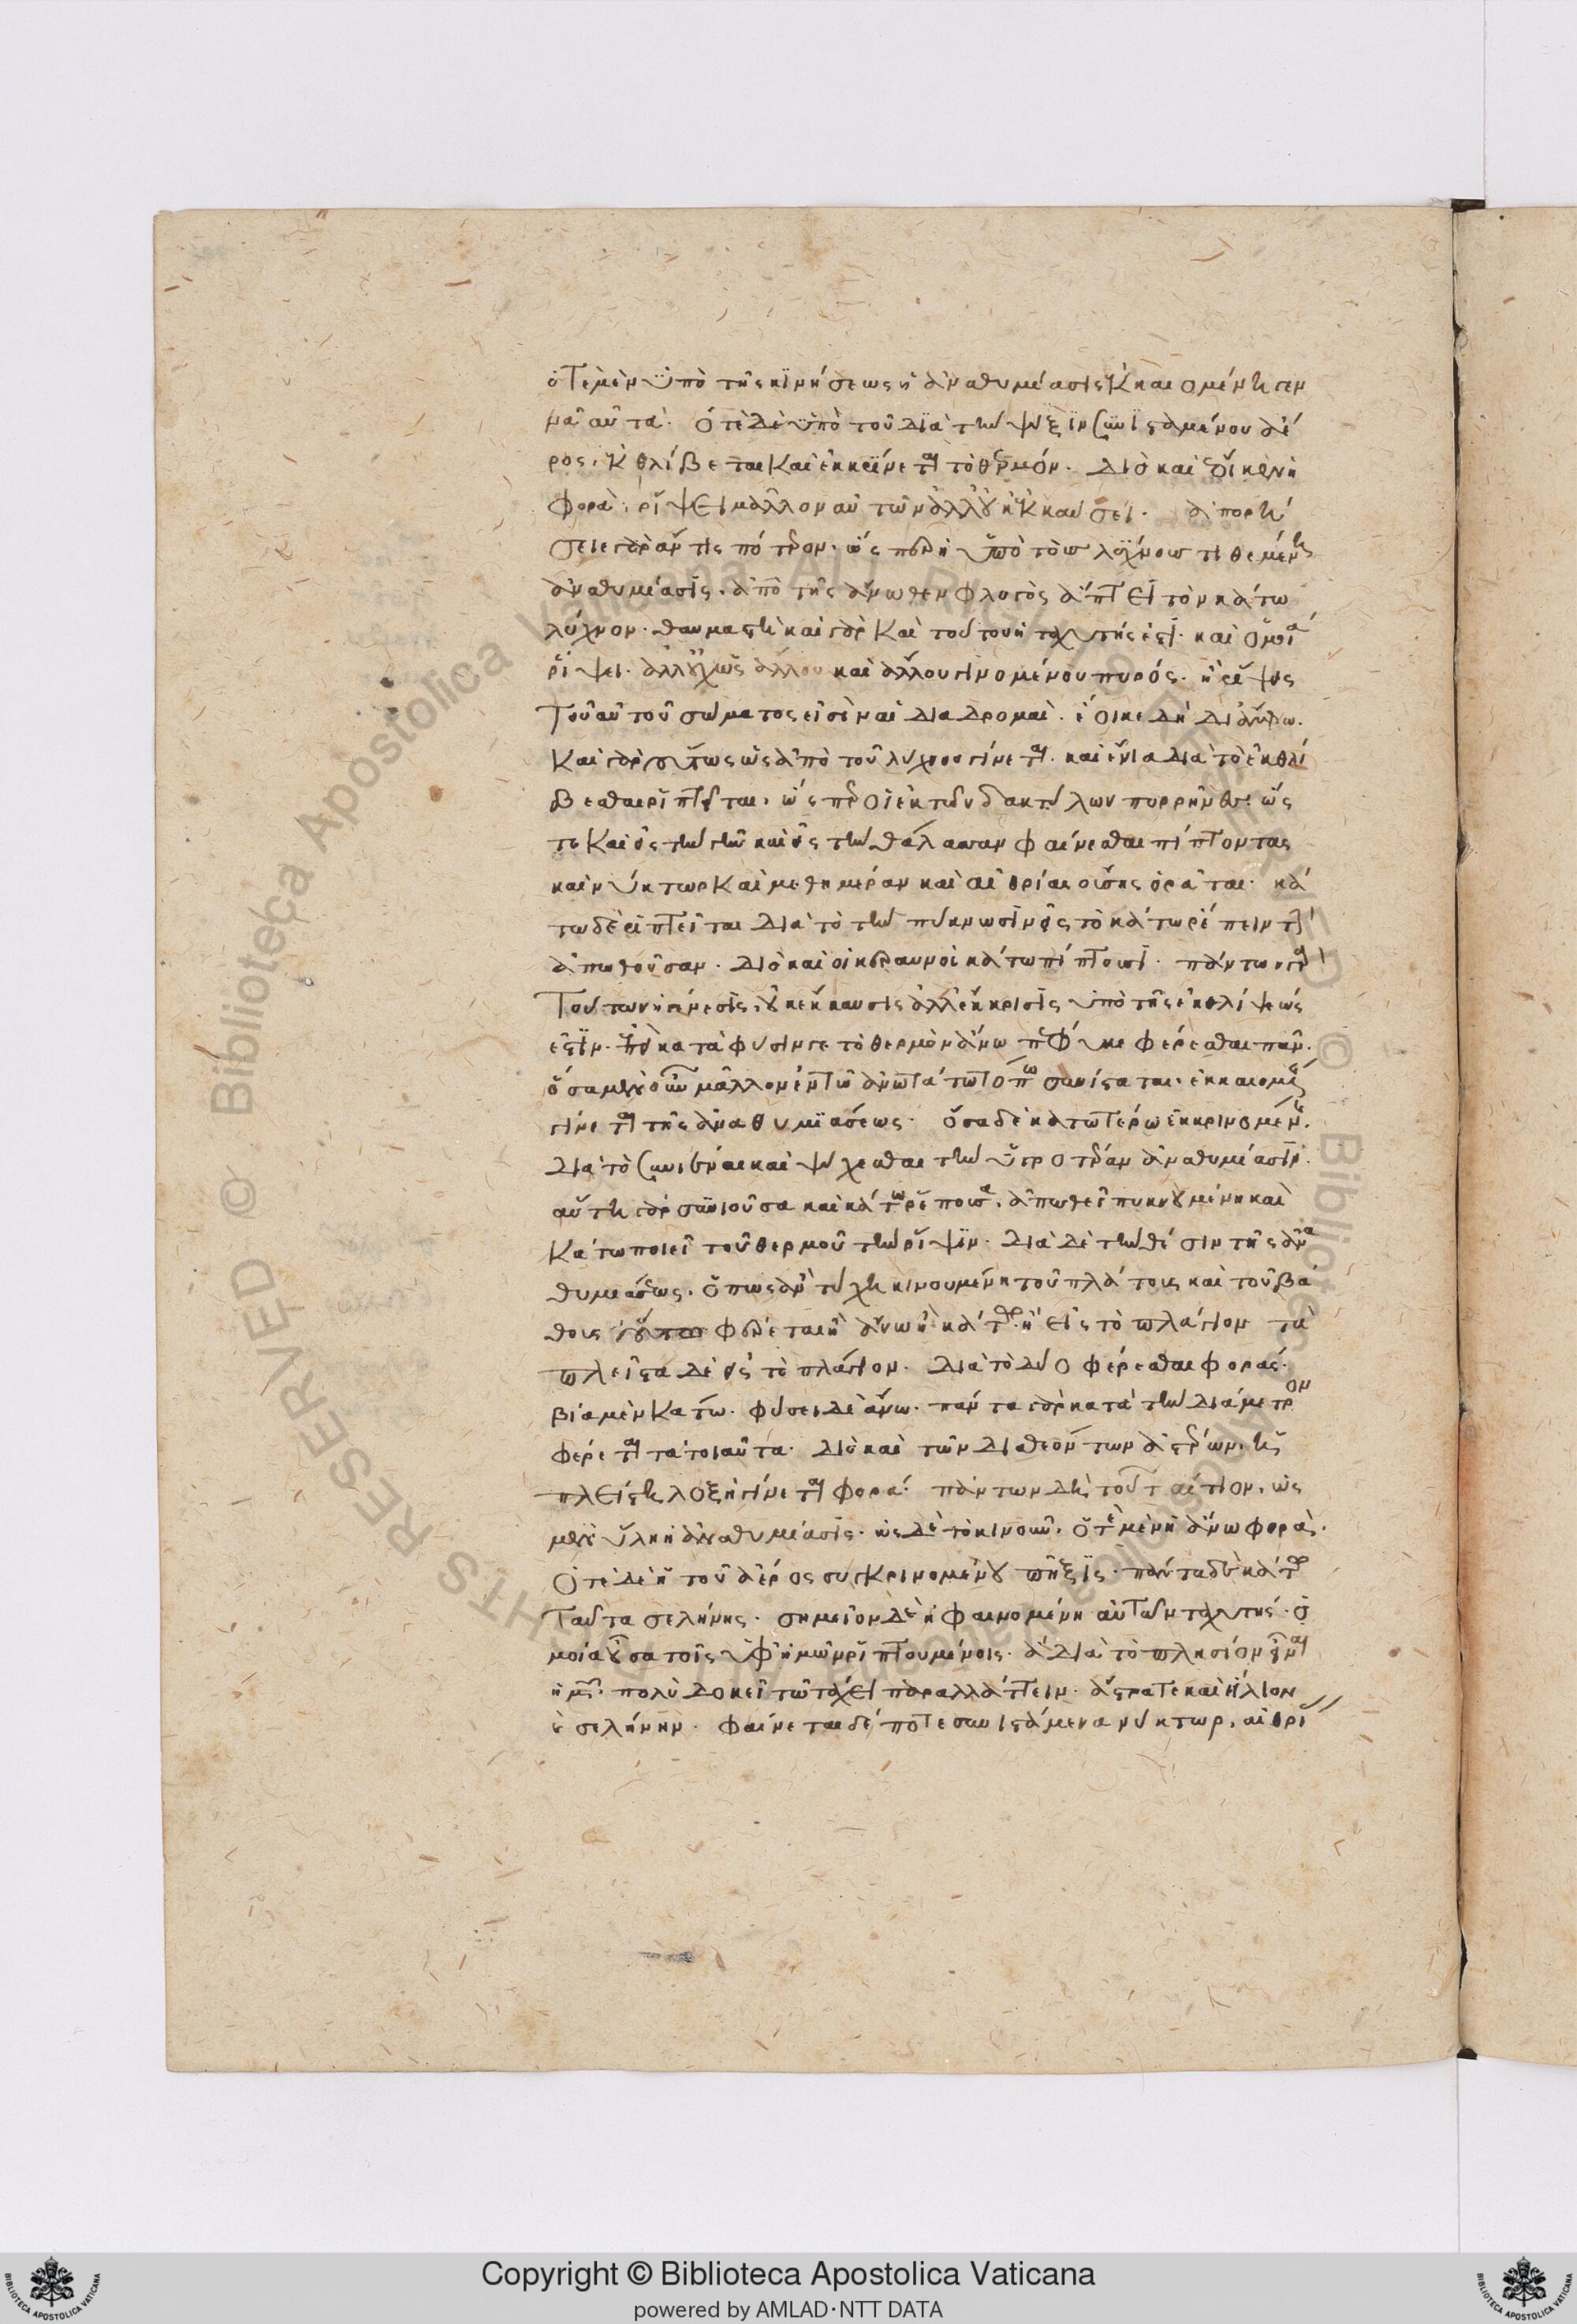 ὁτὲ μὲν ὑπὸ τῆς κινήσεως ἡ ἀναθυμίασις ἐκκαιομένη γεν
νᾷ αὐτά. ὁτὲ δὲ ὑπὸ τοῦ διὰ τὴν ψῦξιν συνισταμένου ἀέ
ρος, ἐκθλίβεται καὶ ἐκκρίνεται τὸ θερμόν. διὸ καὶ ἔοικεν ἡ
φορὰ ῥίψει μᾶλλον αὐτῶν ἀλλ' οὐκ ἐκκαύσει. ἀπορή
σειε γὰρ ἄν τις πότερον, ὥσπερ ἡ ὑπὸ τοὺς λύχνους τιθεμένη
ἀναθυμίασις, ἀπὸ τῆς ἄνωθεν φλογὸς ἅπτει τὸν κάτω
λύχνον. θαυμαστὴ καὶ γὰρ καὶ τούτου ἡ ταχυτής ἐστι. καὶ ὁμοία
ῥίψει. ἀλλ' οὐχ ὡς ἄλλου καὶ ἄλλου γινομένου πυρός. ἢ ῥίψεις
τοῦ αὐτοῦ σώματος εἰσὶν αἱ διαδρομαί. ἔοικε δὴ δι' ἄμφω.
καὶ γὰρ οὕτως ὡς ἀπὸ τοῦ λύχνου γίνεται. καὶ ἔνια διὰ τὸ ἐκθλί
βεσθαι ῥίπτεται, ὥσπερ οἱ ἐκ τῶν δακτύλων πυρρῆνες. ὥς
τε καὶ εἰς τὴν γῆν καὶ εἰς τὴν θάλασσαν φαίνεσθαι πίπτοντας
καὶ νύκτωρ καὶ μεθημέραν καὶ αἰθρίας οὔσης ὁρᾶται. κά
τω δὲ ῥιπτεῖται διὰ τὸ τὴν πύκνωσιν εἰς τὸ κάτω ῥέπειν τὴν
ἀπωθοῦσαν. διὸ καὶ οἱ κεραυνοὶ κάτω πίπτουσι. πάντων γὰρ
τούτων ἡ γένεσις, οὐκ ἔκκαυσις ἀλλ' ἔκκρισις ὑπὸ τῆς ἐκθλίψεώς
ἐστιν. ἐπεὶ κατὰ φύσιν γε τὸ θερμὸν ἄνω πέφυκε φέρεσθαι πᾶν.
ὅσα μὲν οὖν μᾶλλον ἐν τῷ ἀνωτάτω τόπω συνίσταται, ἐκκαιομένης
γίνεται τῆς ἀναθυμιάσεως. ὅσα δὲ κατωτέρω ἐκκρινομένης.
διὰ τὸ συνιέναι καὶ ψύχεσθαι τὴν ὑγροτέραν ἀναθυμίασιν.
αὕτη γὰρ συνιοῦσα καὶ κάτω ῥέπουσα, ἀπωθεῖ πυκνουμένη καὶ
κάτω ποιεῖ τοῦ θερμοῦ τὴν ῥίψιν. διὰ δὲ τὴν θέσιν τῆς ἀνα
θυμιάσεως, ὅπως ἂν τύχη κινουμένη τοῦ πλάτους καὶ τοῦ βά
θους οὕτω φέρεται ἢ ἄνω ἢ κάτω ἢ εἰς τὸ πλάγιον τὰ
πλεῖστα δὲ εἰς τὸ πλάγιον. διὰ τὸ δύο φέρεσθαι φοράς.
βία μὲν κάτω. φύσει δὲ ἄνω. πάντα γὰρ κατὰ τὴν διάμετρον
φέρεται τὰ τοιαῦτα. διὸ καὶ τῶν διαθεόντων ἀστέρων ἡ
πλείστη λοξὴ γίνεται φορά. πάντων δὴ τούτων αἴτιον, ὡς
μὲν ὕλη ἡ ἀναθυμίασις. ὡς δὲ τὸ κινοῦν. ὁτὲ μὲν ἡ ἄνω φορὰ.
ὁτὲ δὲ ἡ τοῦ ἀέρος συγκρινομένου πῆξις. πάντα δὲ κάτω
ταῦτα σελήνης. σημεῖον δὲ ἡ φαινομένη αὐτῶν ταχυτής. ὁ
μοία οὖσα τοῖς ὑφ' ἡμῶν ῥιπτουμένοις. ἃ διὰ τὸ πλησίον εἶναι
ἡμῶν. πολὺ δοκεῖ τῶ τάχει παραλλάττειν. ἄστρα τε καὶ ἥλιον
καὶ σελήνην. φαίνεται δέ ποτε συνιστάμενα νύκτωρ, αἰθρί
Copyright © Biblioteca Apostolica Vaticana
powered by AMLAD·NTT DATA